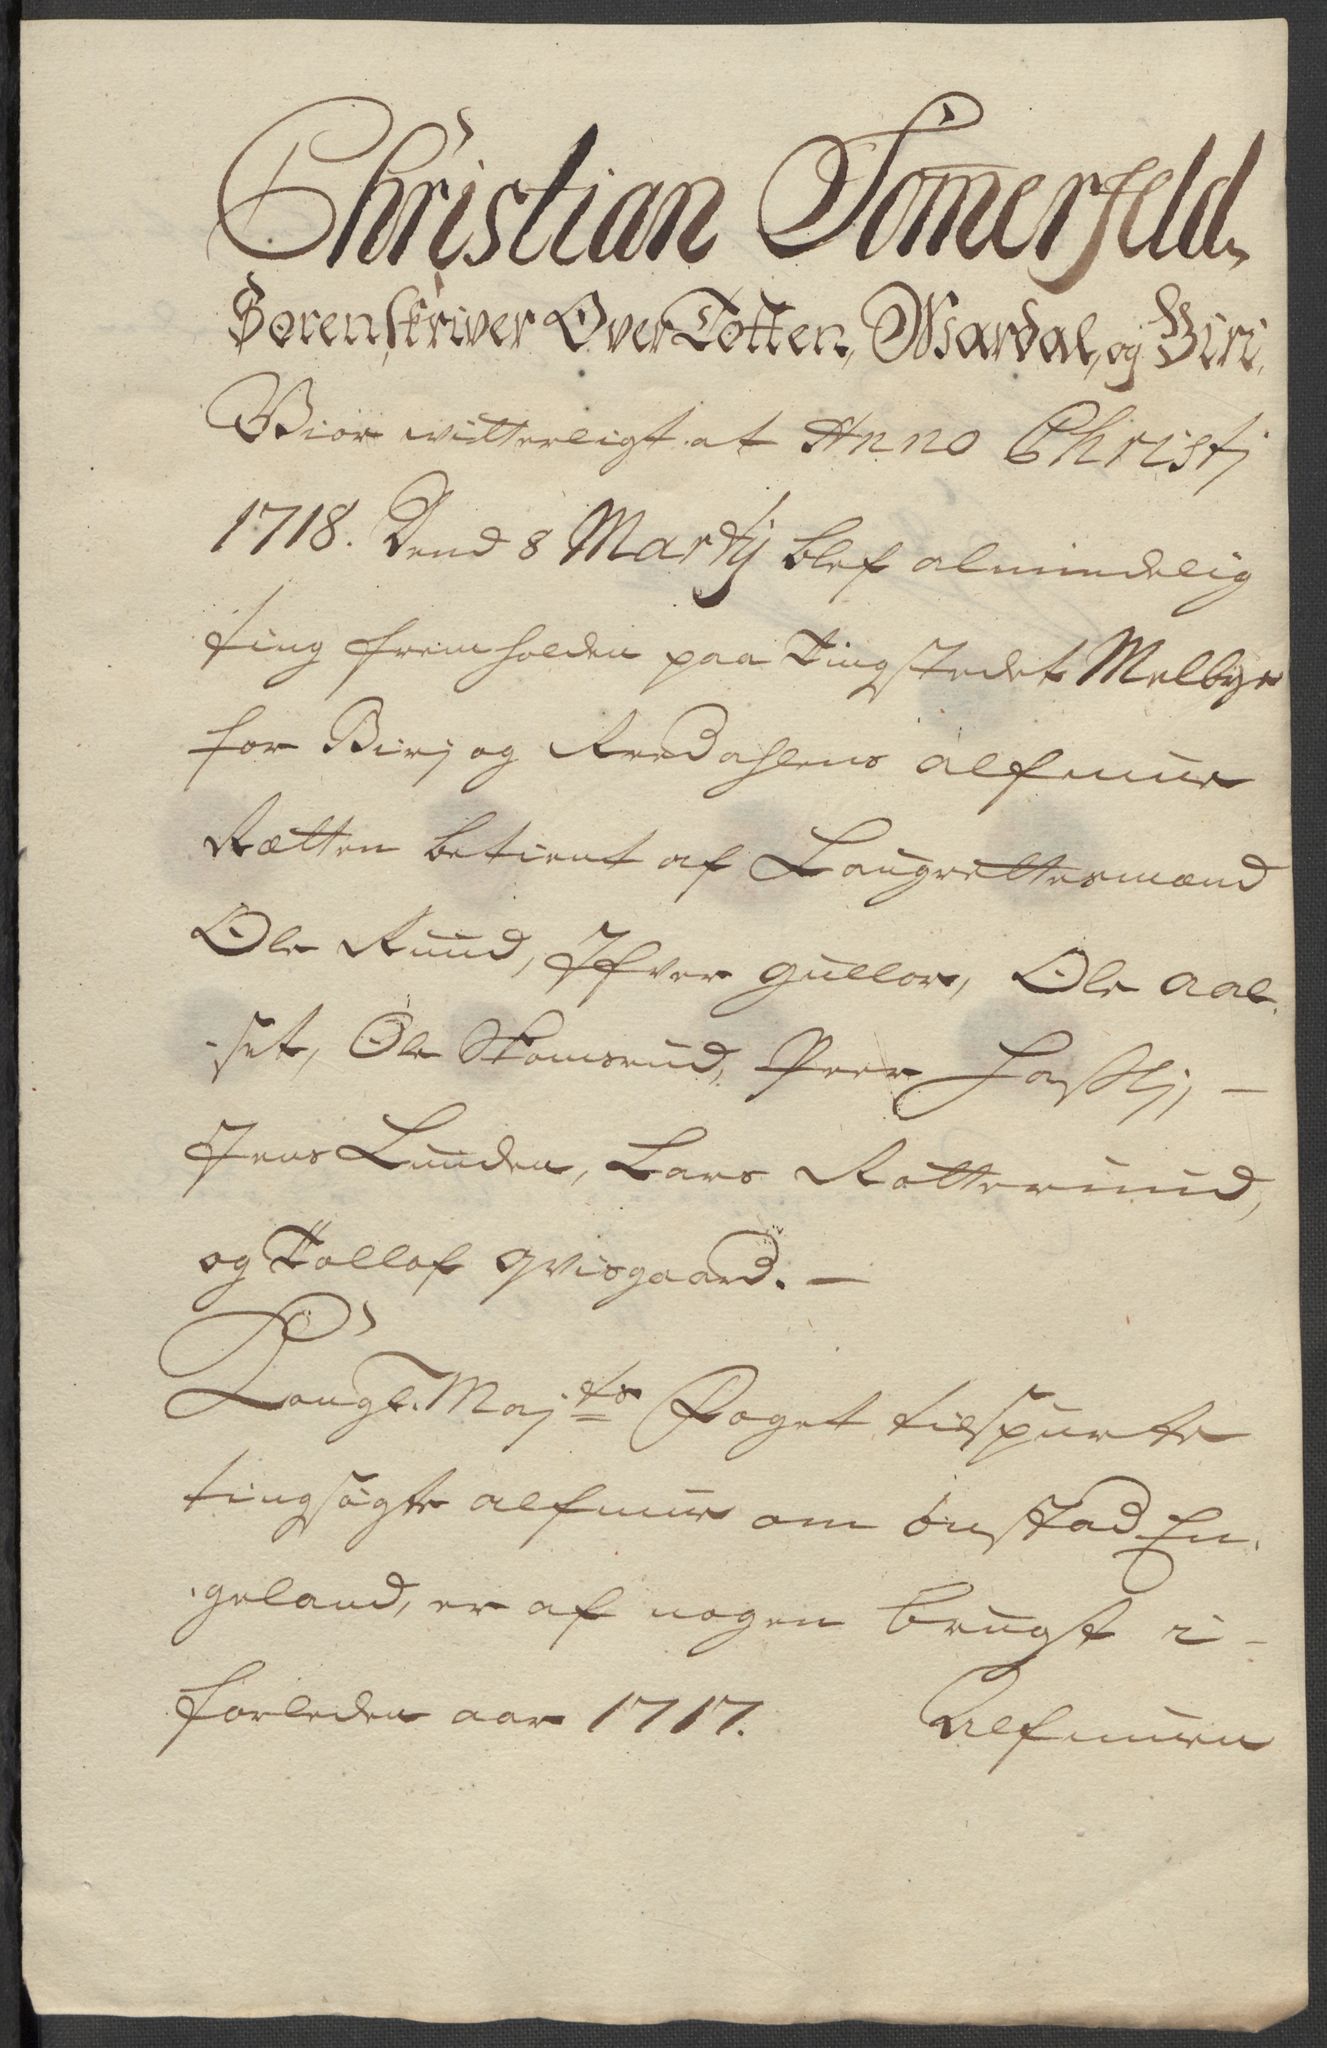 Christian Somerfeld,
Sorenskriver Over Totten, Wardal, og Biri,
Giør witterligt at Anno Christj
1718. Dend 8 Martij blef almindelig
ting fremholden paa Tingstedet Melbye
for Birj og Rredahlens Almue
Rætten betient af Laugrettesmænd
Ole Ruud, Ifver Gullor, Ole Aal-
-set, Ole Skomsrud, Peer Haßlj, -
Jens Lunden, Lars Rotterund,
og Tollof Qvisgaard. -
Kongl. Majts Foget tilspurte
tingsøgte Almue om Onstad En-
-geland, er af nogen brugt i -
forleden aar 1717. Almuen